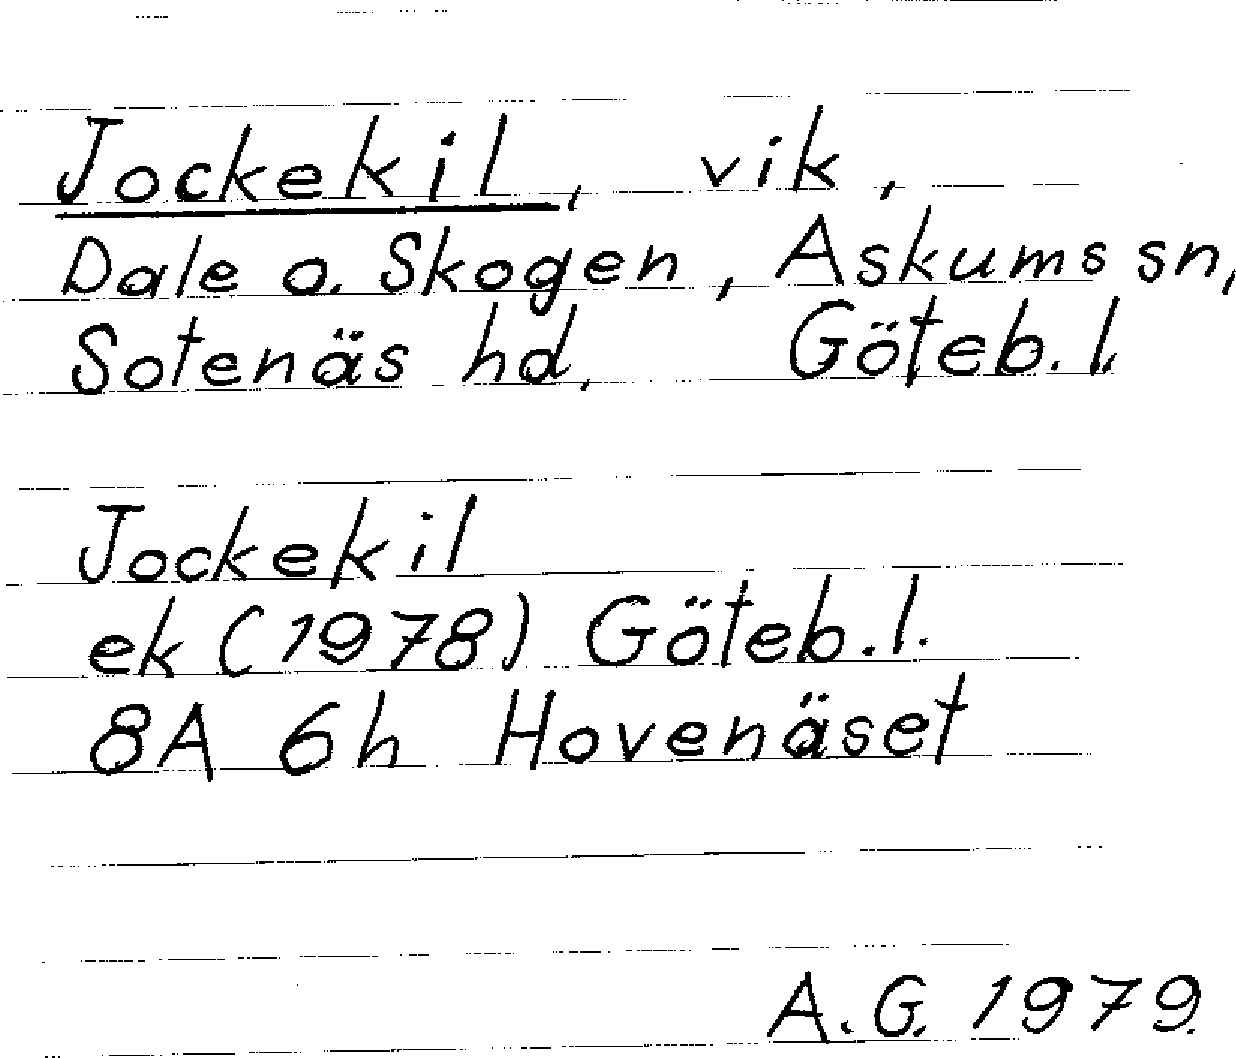 Jockekil, vik,
Dale o. Skogen, Askums sn,
Sotenäs hd, Göteb. l.
Jockekil
ek (1978) Göteb. l.
8A 6h Hovenäset
A. G. 1979.